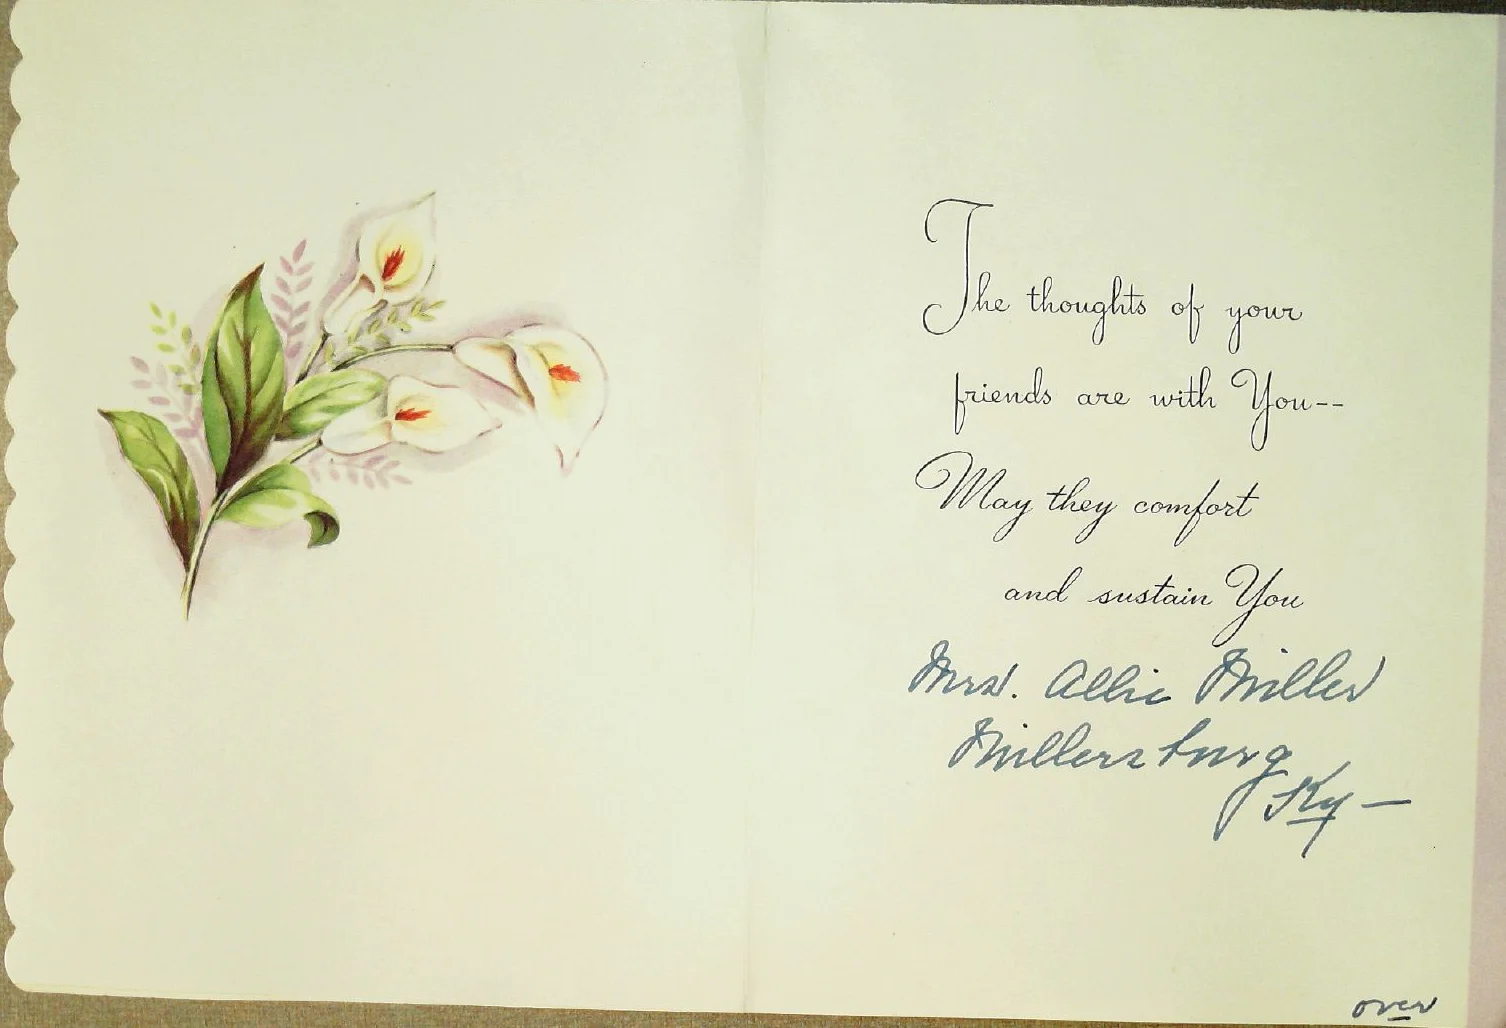 The thoughts of your
friends are with You--
May they comfort
and sustain You
Mrs. Allie Miller
Millersburg
Ky —
over